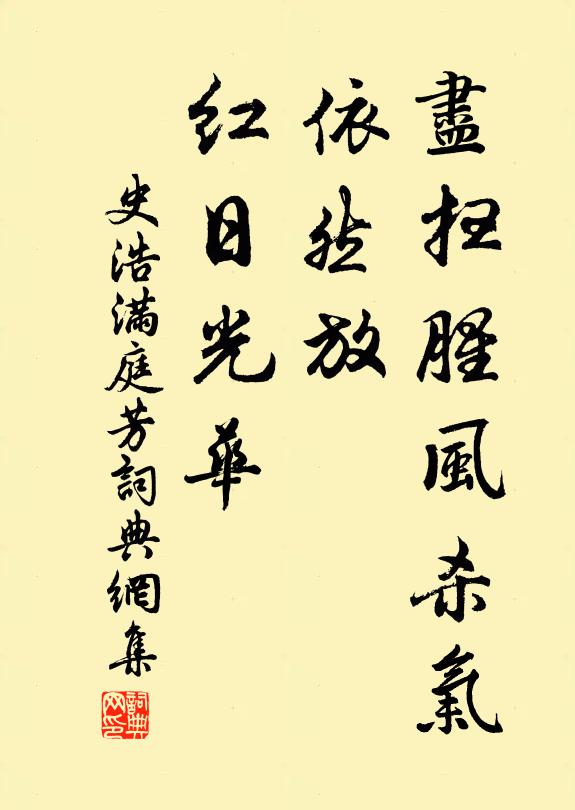 盡扫腥風杀氣
依然放
紅日光華
史浩滿庭芳詞典網集
詞典网印